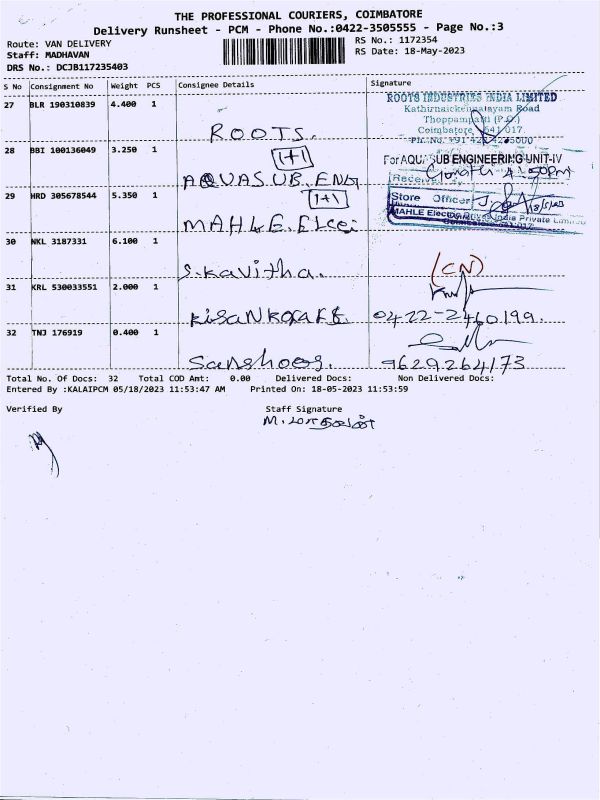 THE PROFESSIONAL COURIERS, COIMBATORE
Delivery Runsheet - PCM - Phone No.:0422-3505555 - Page No.:3
Route: VAN DELIVERY
RS No.: 1172354
Staff: MADHAVAN
RS Date: 18-May-2023
DRS No.: DCJB117235403
S No Consignment No Weight PCS Consignee Details Signature
27 BLR 190310839 4.400 1 ROOTS.
ROOTS INDUSTRIES INDIA LIMITED
Kathirnaickenpalayam Road
Thoppampatti (P.O.)
Coimbatore 641 017
28 BBI 100136049 3.250 1 AQUASUB.ENG
1+1
For AQUA SUB ENGINEERING UNIT-IV
29 HRD 305678544 5.350 1 MAHLE.Elcei
1+1
Store Officer
MAHLE Electric Drives India Private Limited
30 NKL 3187331 6.100 1 S.Kavitha. (CN)
31 KRL 530033551 2.000 1 KisanKraft. 0422-2460199.
32 TNJ 176919 0.400 1 Sanshoos. 9629264173
Total No. Of Docs: 32 Total COD Amt: 0.00 Delivered Docs: Non Delivered Docs:
Entered By :KALAIPCM 05/18/2023 11:53:47 AM Printed On: 18-05-2023 11:53:59
Verified By Staff Signature
M. மாதவன்